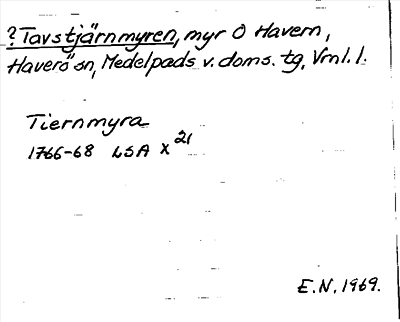 ? Tavstjärnmyren, myr O Havern,
Haverö sn, Medelpads v. doms. tg, Vrnl. l.
Tiernmyra
1766-68 LSA X 21
E.N. 1969.